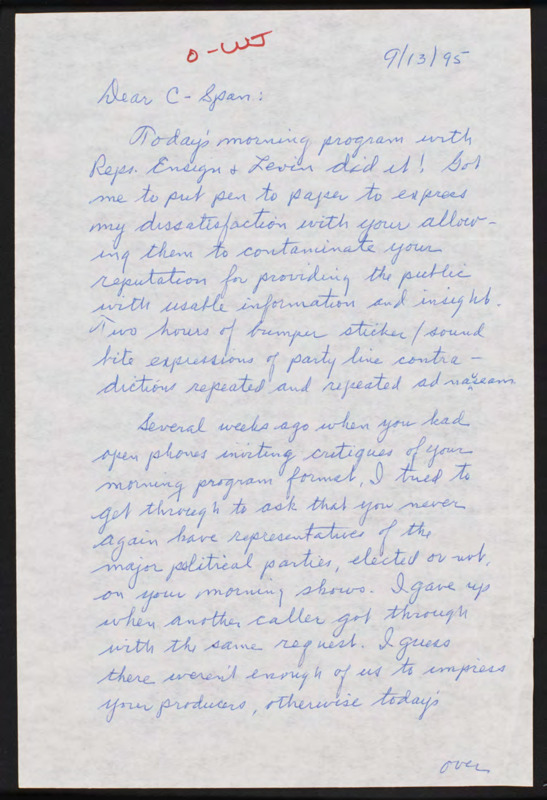 O-WJ
9/13/95
Dear C-Span:
Today's morning program with
Reps. Ensign & Levin did it! Got
me to put pen to paper to express
my dissatisfaction with your allow-
ing them to contaminate your
reputation for providing the public
with usable information and insight.
Two hours of bumper sticker/sound
bite expressions of party line contra-
dictions repeated and repeated ad nauseam.
Several weeks ago when you had
open phones inviting critiques of your
morning program format, I tried to
get through to ask that you never
again have representatives of the
major political parties, elected or not,
on your morning shows. I gave up
when another caller got through
with the same request. I guess
there weren't enough of us to impress
your producers, otherwise today's
over